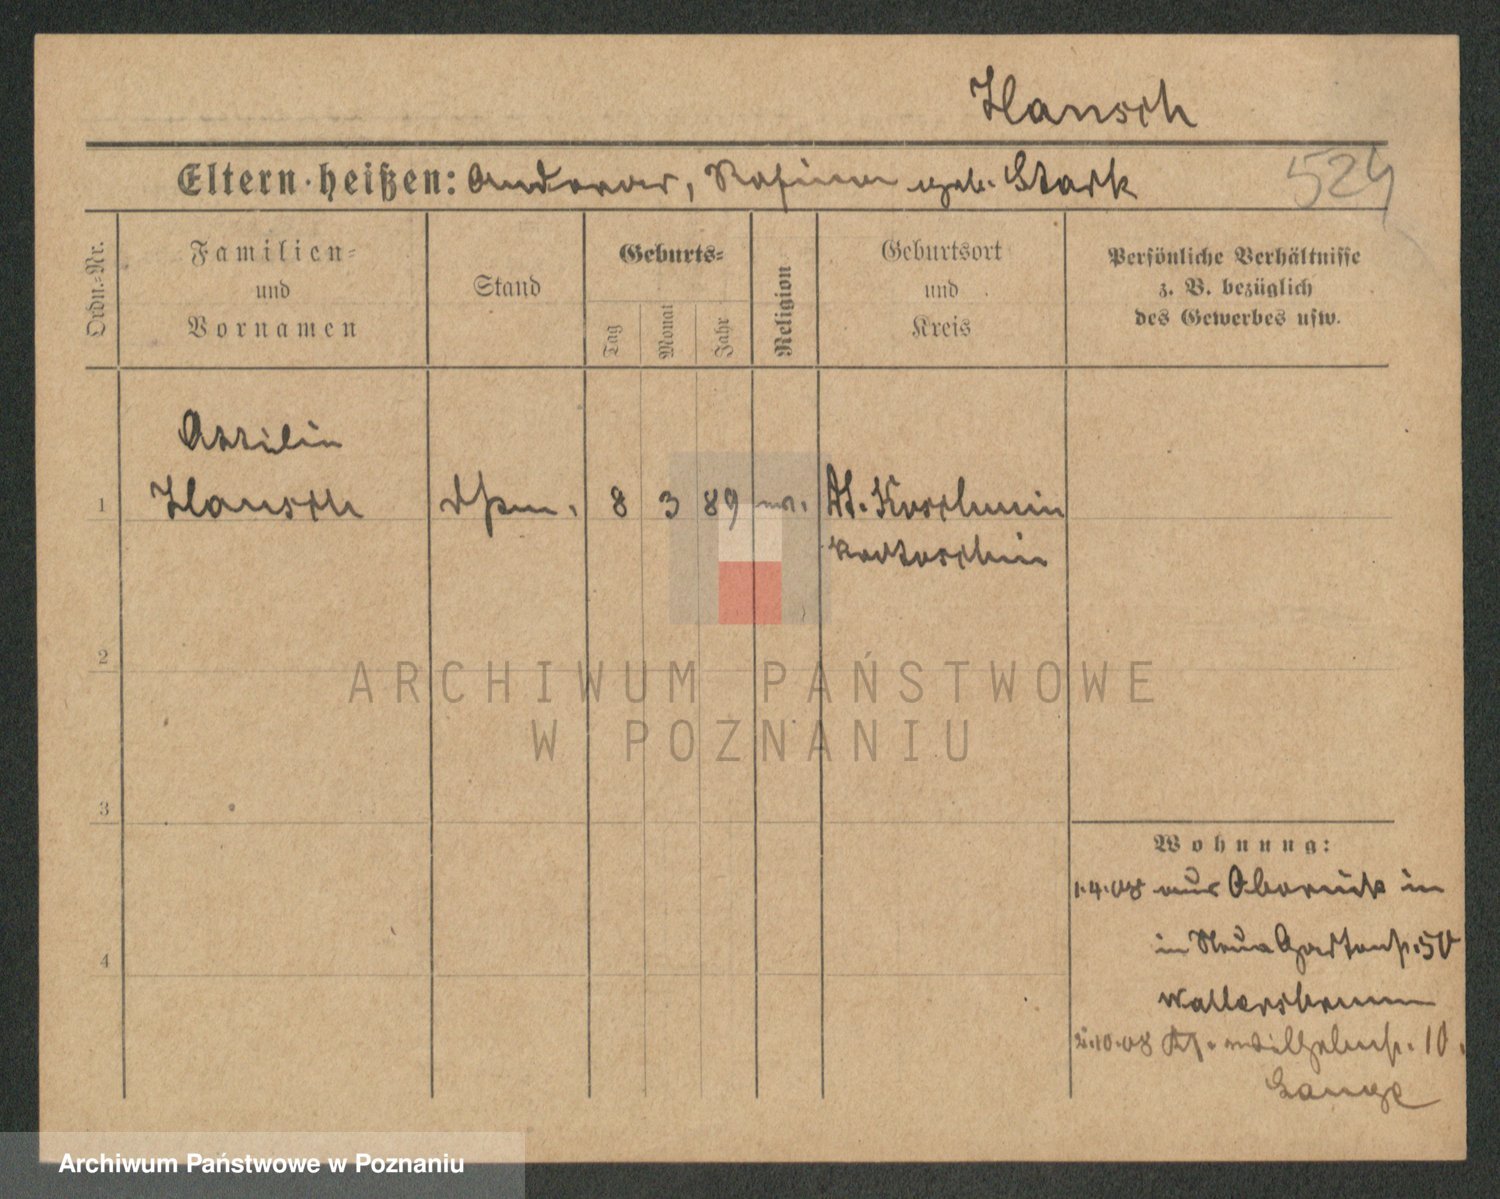 Hansch
Eltern heißen: Andreas, Rosina geb. Stark
524
Ordn.-Nr.
Familien-
und
Vornamen
Stand
Geburts-
Tag
Monat
Jahr
Religion
Geburtsort
und
Kreis
Persönliche Verhältnisse
z. B. bezüglich
des Gewerbes usw.
Ottilie
1 Hansch 8 3 89 ev. Koschmin
Krotoschin
2
ARCHIWUM PAŃSTWOWE
W POZNANIU
3
Wohnung:
1.4.08 aus
in Neue Gartenstr. 50
4
2.10.08 Wilhelmstr. 10.
Lange
Archiwum Państwowe w Poznaniu